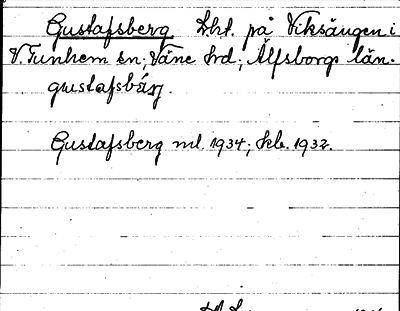 Gustafsberg lht. på Viksängen i
V. Tunhem sn; Väne hrd; Älfsborgs län.
gustafsbärj
Gustafsberg ml. 1934; kb. 1932.